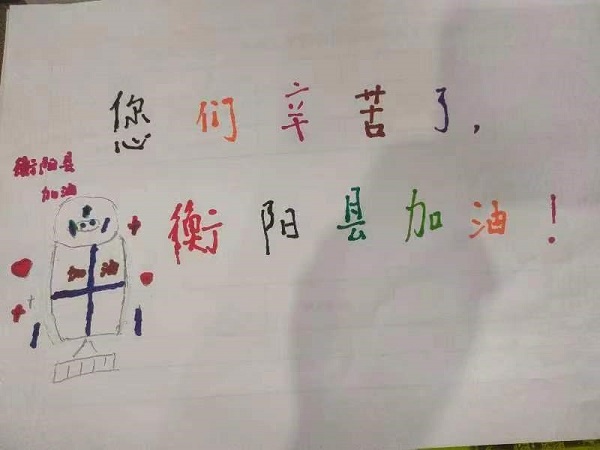 您们辛苦了，
衡阳县加油！
衡阳县
加油
加油